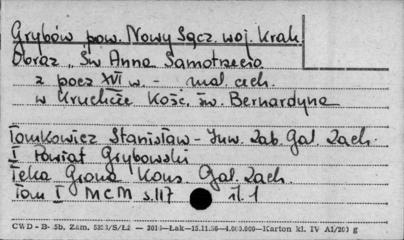 Grybów pow. Nowy Sącz. woj. Krak.
Obraz „Św Anna Samotrzecia
z pocz XVI w. - mal. cech.
w Kruchcie Kość. św. Bernardyna
Tomkowicz Stanisław - Inw. Zab. Gal. Zach.
I Powiat Grybowski
Teka Grona Kons Gal. Zach.
Tom I MCM s. 117 il. 1
CWD - B- 5b. Zam. /S/Łż — 2010—Łak—15.11.56—4.000.000—Karton kl. IV A1/200 g